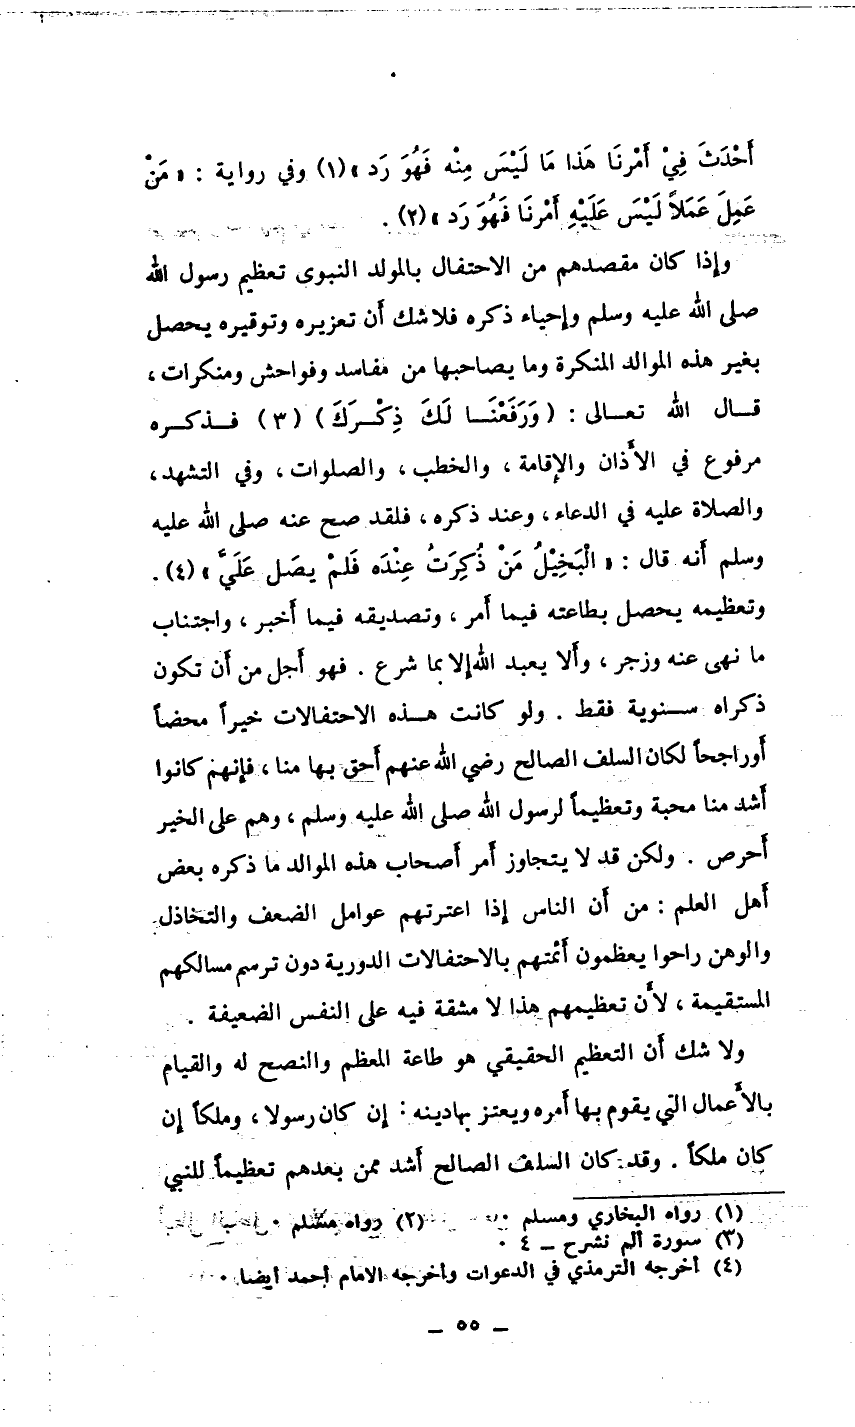 أَحْدَثَ فِيْ أَمْرِنَا هَذا مَا لَيْسَ مِنْه فَهُوَ رَد »(١) وفي رواية : « مَنْ
عَمِلَ عَمَلاً لَيْسَ عَلَيْهِ أَمْرنَا فَهُوَ رَد »(٢) .
وإذا كان مقصدهم من الاحتفال بالمولد النبوى تعظيم رسول الله
صلى الله عليه وسلم وإحياء ذكره فلاشك أن تعزيره وتوقيره يحصل
بغير هذه الموالد المنكرة وما يصاحبها من مفاسد وفواحش ومنكرات ،
قـال الله تعـالى : ( وَرَفَعْنَـا لَكَ ذِكْـرَكَ ) (٣) فـذكـره
مرفوع في الأذان والإقامة ، والخطب ، والصلوات ، وفي التشهد،
والصلاة عليه في الدعاء ، وعند ذكره ، فلقد صح عنه صلى الله عليه
وسلم أنه قال : « الْبَخِيْلُ مَنْ ذُكِرَتُ عِنْدَه فَلمْ يصَل عَلَيَّ » (٤) .
وتعظيمه يحصل بطاعته فيما أمر ، وتصديقه فيما أخبر ، واجتناب
ما نهى عنه وزجر ، وألا يعبد الله إلا بما شرع . فهو أجل من أن تكون
ذكراه سـنوية فقط . ولو كانت هـذه الاحتفالات خيراً محضاً
أوراجحاً لكان السلف الصالح رضي الله عنهم أحق بها منا ، فإنهم كانوا
أشد منا محبة وتعظيماً لرسول الله صلى الله عليه وسلم ، وهم على الخير
أحرص . ولكن قد لا يتجاوز أمر أصحاب هذه الموالد ما ذكره بعض
أهل العلم : من أن الناس إذا اعترتهم عوامل الضعف والتخاذل
والوهن راحوا يعظمون أئمتهم بالاحتفالات الدورية دون ترسم مسالكهم
المستقيمة ، لأن تعظيمهم هذا لا مشقة فيه على النفس الضعيفة .
ولا شك أن التعظيم الحقيقي هو طاعة المعظم والنصح له والقيام
بالأعمال التي يقوم بها أمره ويعتز بهادينه : إن كان رسولا ، وملكاً إن
كان ملكاً . وقد كان السلف الصالح أشد ممن بعدهم تعظيماً للنبي
(١) رواه البخاري ومسلم . (٢) رواه مسلم .
(٣) سورة ألم نشرح ــ ٤ .
(٤) أخرجه الترمذي في الدعوات وأخرجه الامام أحمد أيضا .
ــ ٥٥ ــ